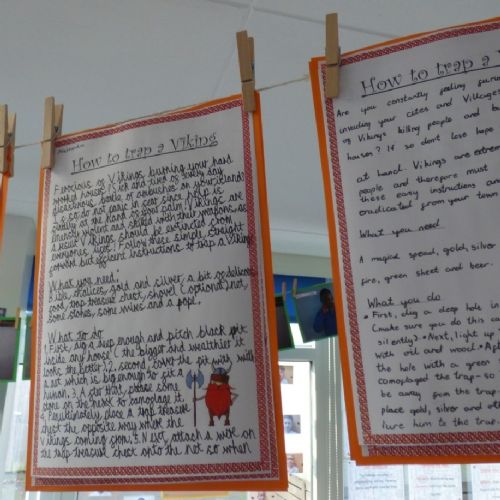 How to trap a Viking
Ferocious Vikings, burning your hard
worked houses? Sick and tired of every day
disastrous battle or ambushes on your island?
If so do not panic a since help is
at the hand of your palm! Vikings are
violent and skilled with their weapons, as
a result Vikings should be extinct from
everyones lives! Follow these simple, straight
forward but efficient instructions to trap a Viking
What you need:
Bible, gold and silver, a bit of delicious
food, trap treasure chest, shovel (optional) net,
some stones, some wire and a pole.
What to do
1. First, dig a deep enough and pitch black pit
inside any house (the bigger and wealthier it
looks the better). 2. Second, cover the pit with
a net which is big enough to fit a
human. 3. After that, place some
on the net to camoflage it.
4. place a trap treasure
chest the opposite way where the
Vikings coming from. 5. Next attach a wire on
the trap treasure chest onto the net so when
How to trap a
Are you constantly feeling
invading your cites and Villages
of Vikings killing people and
houses? If so don't lose hope
at hand. Vikings are extrem
people and therefore must
these easy instructions and
eradicated from your town
What you need
A magical spead, gold, silver
fire, green sheet and beer.
What you do
• First, dig a deep hole in
(make sure you do this
silently) • Next, light up
with oil and wood. •
the hole with a green
camoplaged the trap- so
be away from the trap
place gold, silver and
lure him to the trap.